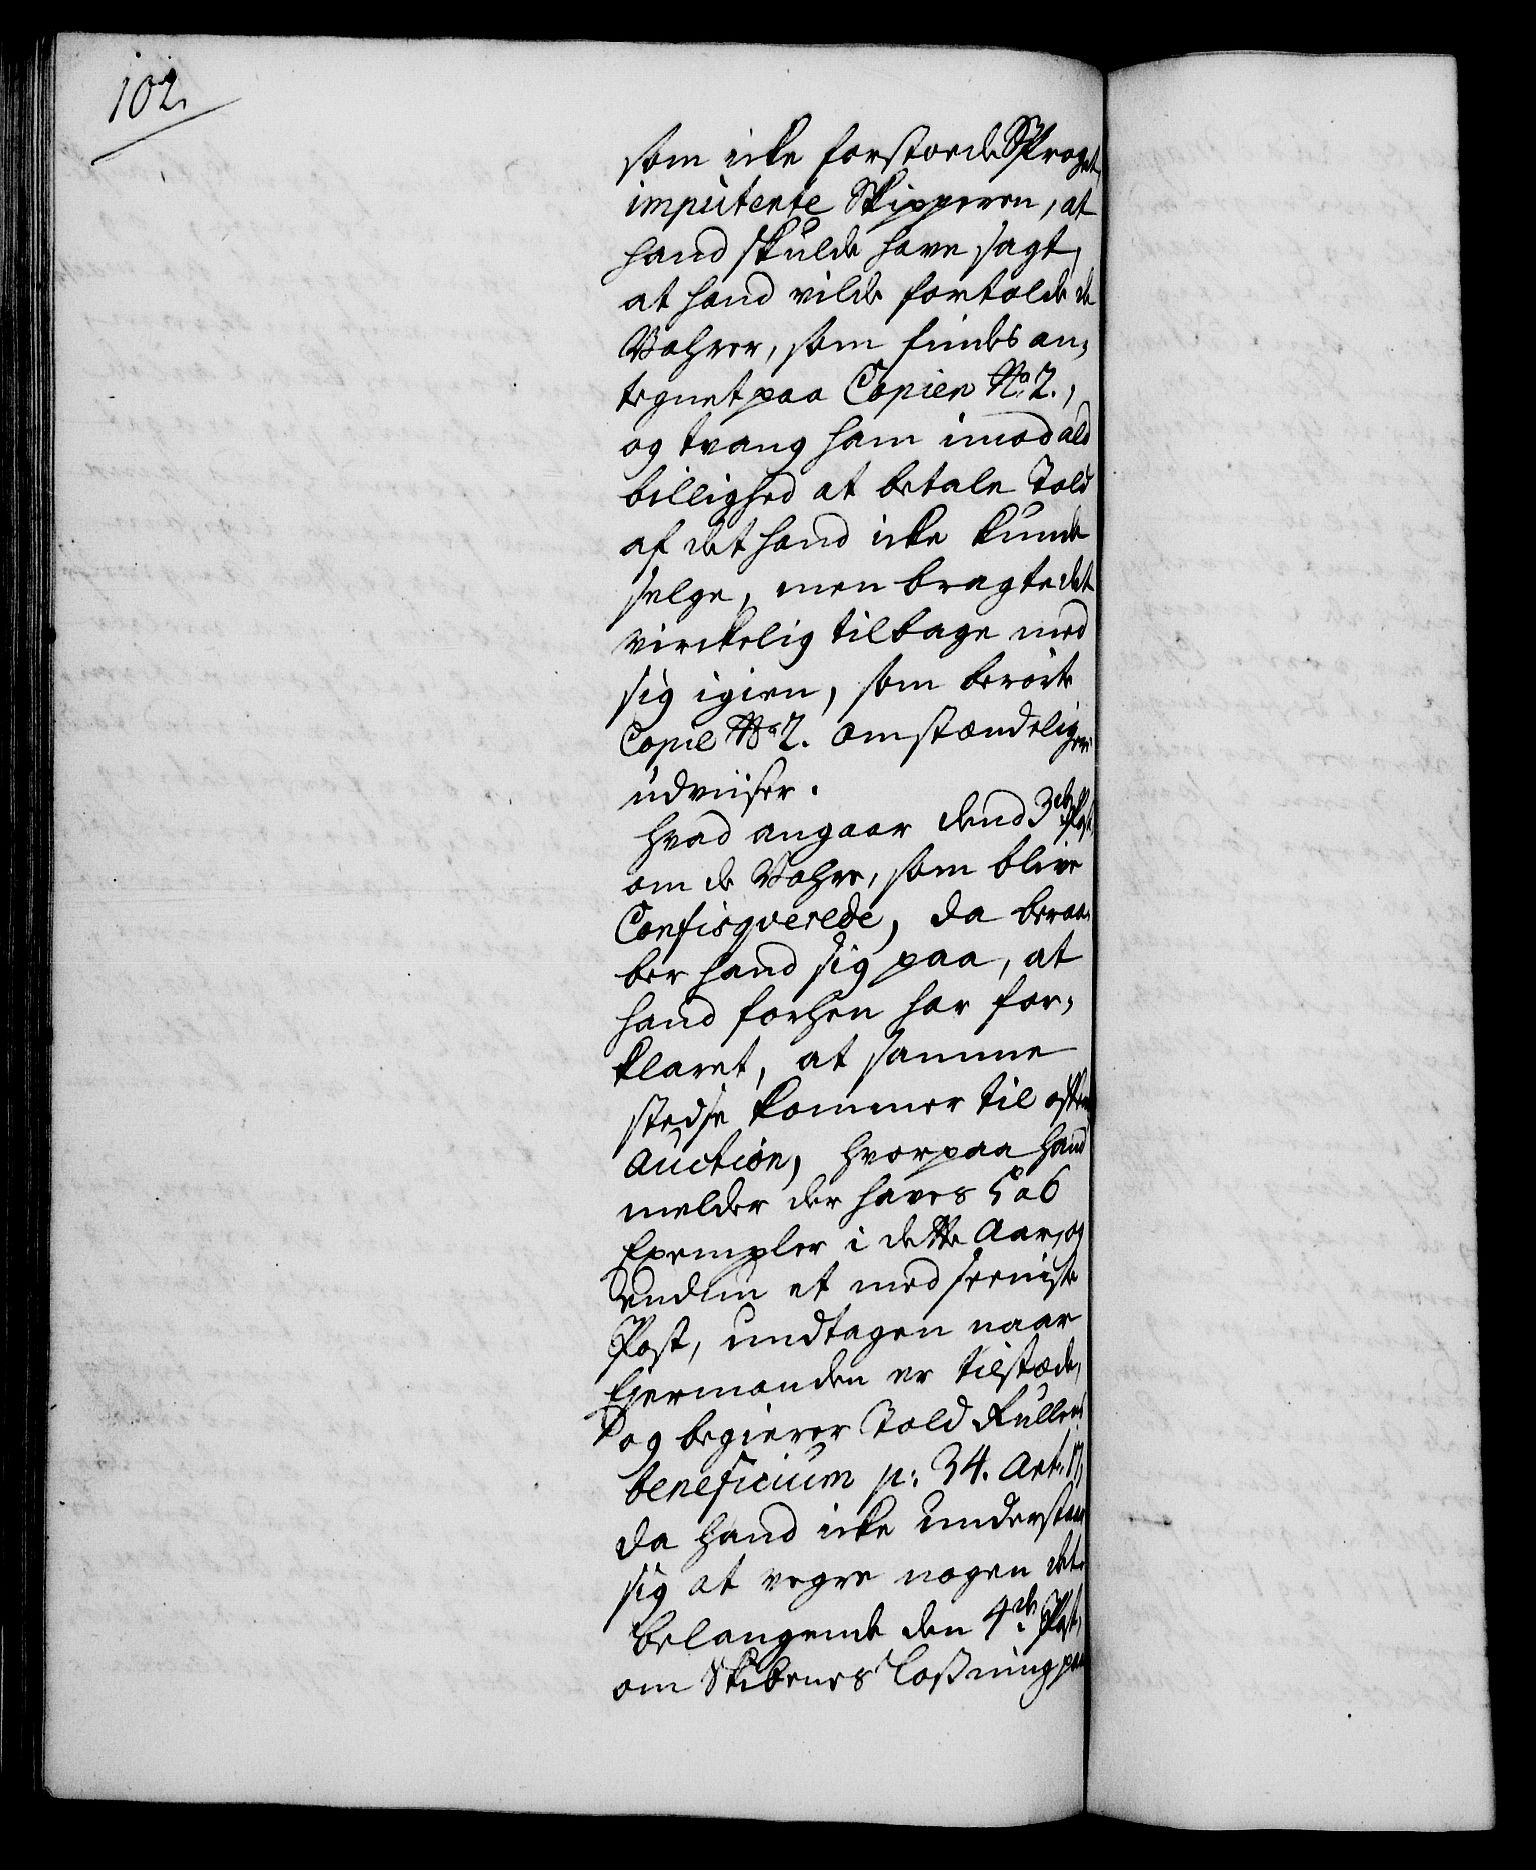 102.
som icke forstoed Sproget,
imputerte Skipperen, at
hand skulde have sagt,
at hand vilde fortolde de
Vahrer, som findes an-
tegnet paa Copien No 2.,
og tvang ham imod ald
billighed at betale Told
af det hand icke kunde
selge, men bragte det
virckelig tilbage med
sig igien, som berørte
Copie No 2. omstændeligere
udviiser.
Hvad angaar dend 3de Post
om de Vahre, som blive
Confisqverede, da beraa-
ber hand sig paa, at
hand forhen har for-
klaret, at samme
stedse kommer til offentl
Auction, hvorpaa hand
melder der haves 5 a 6
Exempler i dette Aar, og
endnu et med seeniste
Post, undtagen naar
Ejermanden er tilstæde,
og begierer Told Rullens
beneficium p: 34. Art: 17,
da hand icke understaar
sig at vegre nogen det.
Belangende den 4de Post,
om Skibenes Losning paa